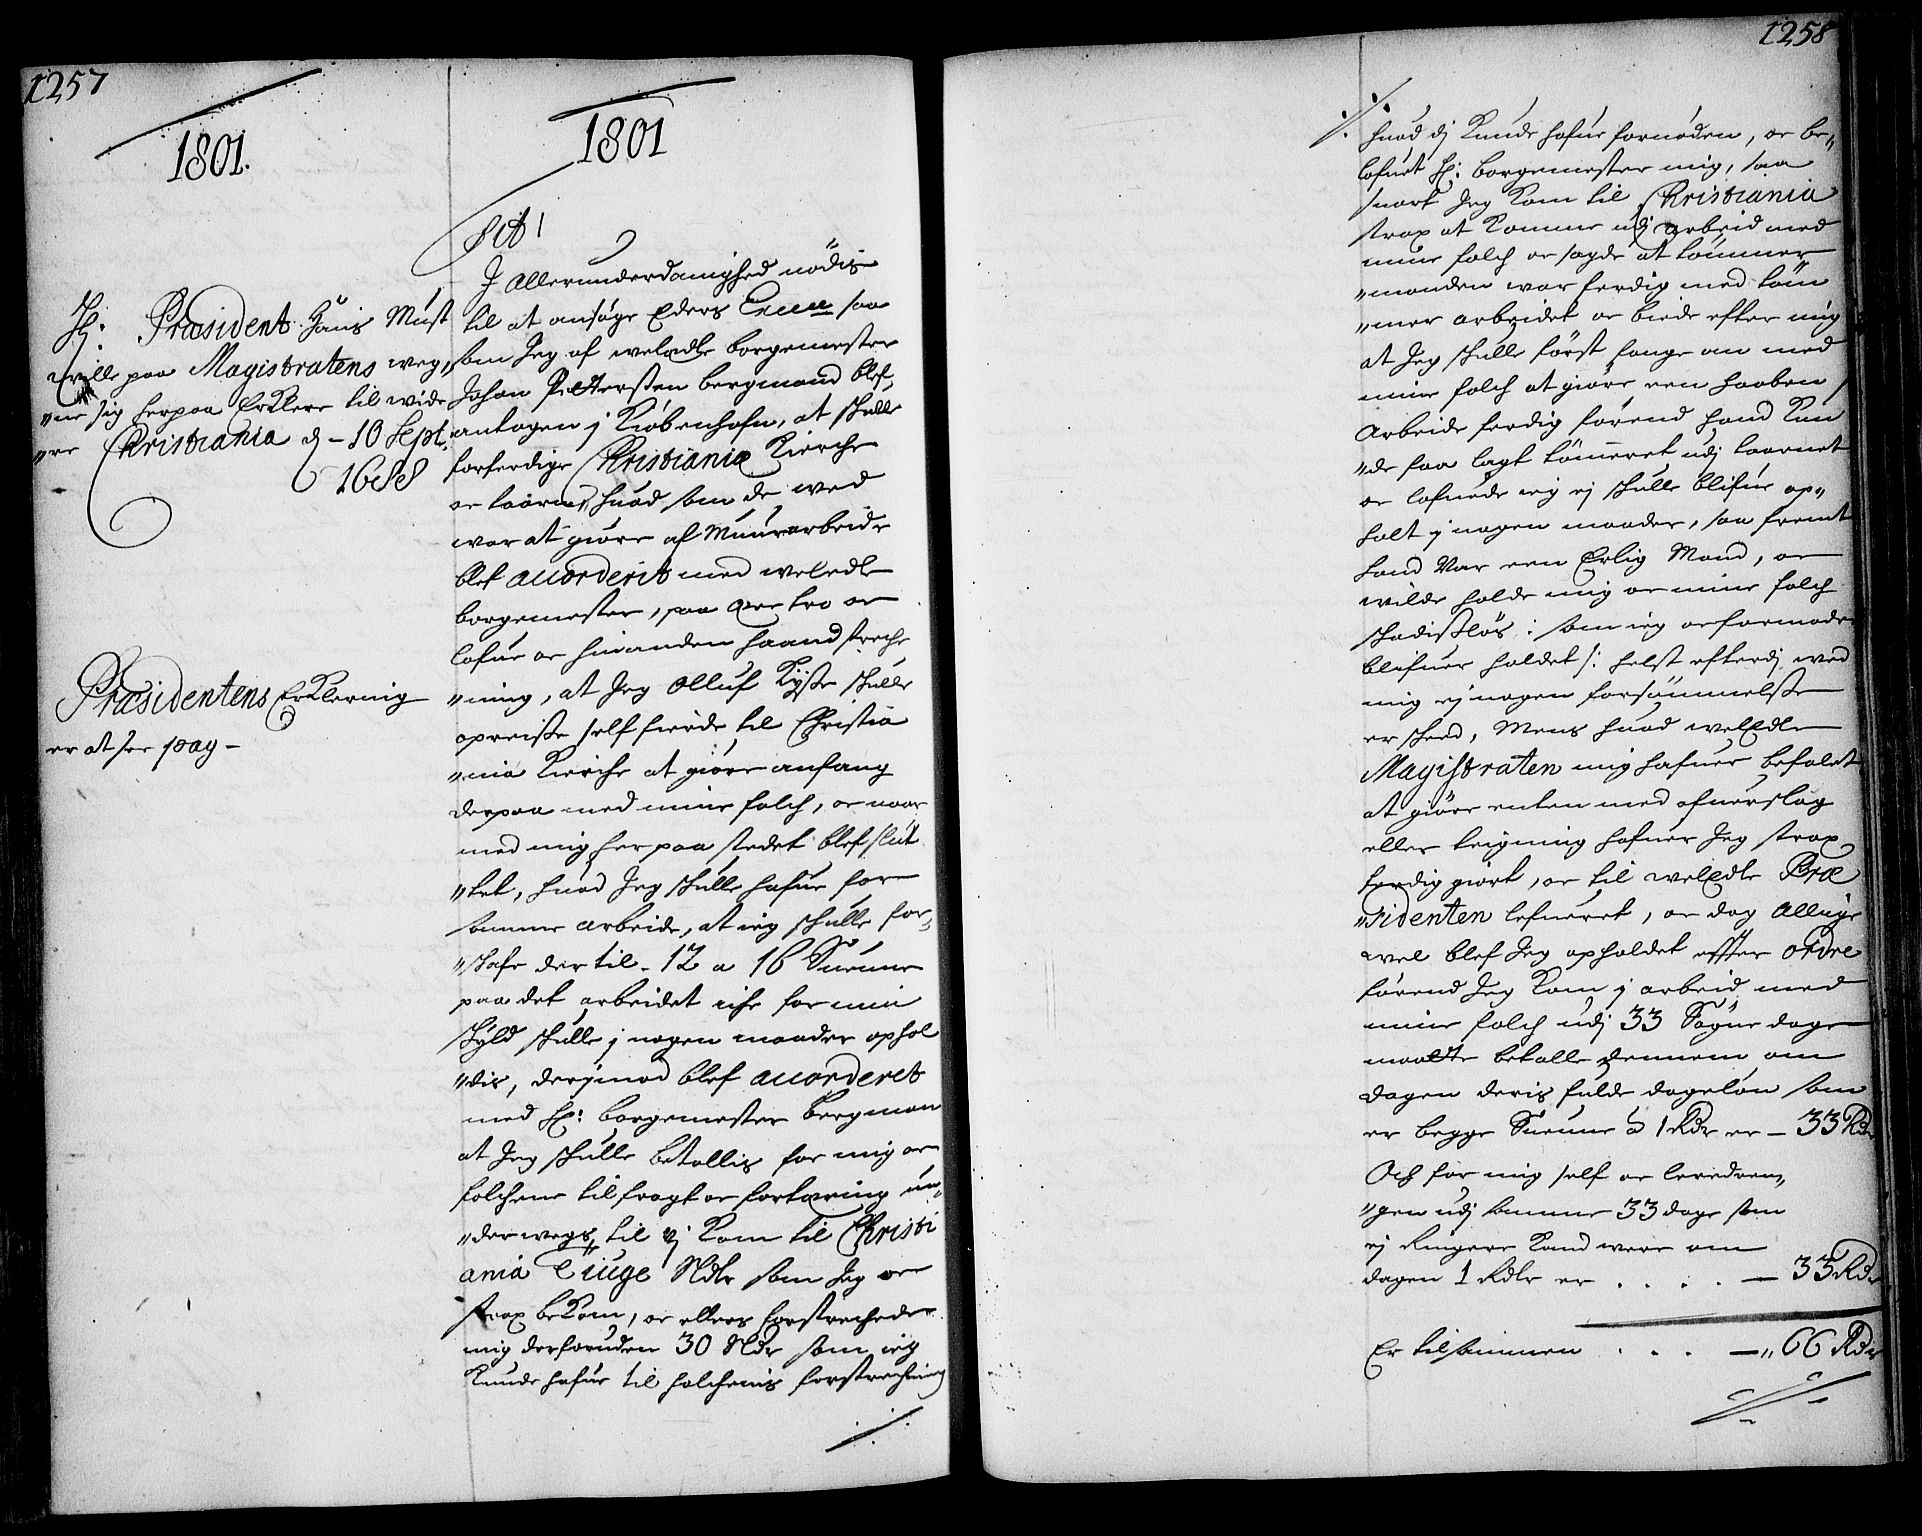 1257
1801.
H: Præsident Hans Must
wille paa Magistratens weg„
„ne sig herpaa Erklere til wide
„re Christiania d – 10 Sept.
1688
Præsidentens Erklering
er at see pag –
1801
S: T:
I allerunderdanighed nödis
til at ansöge Eders Excell saa
som Jeg af weledle borgemester
Johan Pettersen bergmand blef
antagen j Kiöbenhafn, at skulle
forferdige Christianiæ Kierche
oc taarn, huad som de wed
war at giöre af Muurarbeide
blef accorderit med weledle
borgemester, paa ære tro oc
lofue oc hinanden haandstreche
„ning, at Jeg Olluf Kysse skulle
opreisse self fierde til Christia
„nia Kierche at giöre anfang
derpaa med mine folch, oc naar
med mig her paa stedet blef slut
„tet, huad Jeg skulle hafue for
samme arbeide, at ieg skulle for„
„skafe dertil – 12 a 16 Suenne
paa det arbeidet iche for min
skyld skulle j nogen maader ophol
„dis, derjmod blef accorderet
med H: borgemester bergman
at Jeg skulle betallis for mig oc
folchene til fragt oc fortæring un„
„derwegs, til vj kom til Christi
ania Tiuge Rdlr som Jeg oc
strax bekom, oc ellers forstrechede
mig derforuden 30 Rdr som ieg
kunde hafue til folchenis forstrechning
./.
1258
./.
huad dj kunde hafue fornöden, oc be„
lofuet H: borgemester mig, saa
snart Jeg kom til Christiania
strax at komme udj arbeid med
mine folch oc sagde at tömmer
„manden war ferdig med töm
„mer arbeidet oc biede efter mig
at Jeg skulle först fange an med
mine folch at giöre een haaben
Arbeide ferdig förend hand kun
„de faa lagt tömmeret udj taarnet
oc lofuede ieg ej skulle blifue op„
holt j nogen maader, saa fremt
hand Var een Erlig Mand, oc
wilde holde mig oc mine folch
skadislös : som ieg oc formoder
blifuer holdet /: helst efterdj wed
mig ej nogen forsömmelsse
er skeed, Mens huad weledle
Magistraten mig hafuer befalet
at giöre enten med ofuerslag
eller teigning hafuer Jeg strax
ferdig giort, oc til weledle Præ
„sidenten lefueret, oc dog allige
wel blef Jeg opholdet effter ordre
förend Jeg kom j arbeid med
mine folch udj 33 Sögne dage
maatte betalle dennem om
dagen deris fulde dagelön som
er begge Suenne a 1 Rdr er – 33 Rdr
Och for mig self oc leredren„
„gen udj samme 33 dage som
ej Ringere kand were om
dagen 1 Rdlr er . . . . — 33 Rdr
Er tilsammen . . . —„ 66 Rdr